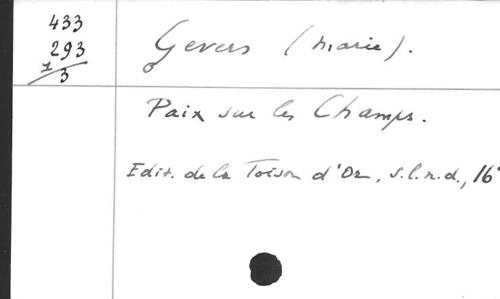 433
293
1/3
Gevers (Marie).
Paix sur les Champs.
Edit. de la Toison d'Or, s.l.n.d., 16°